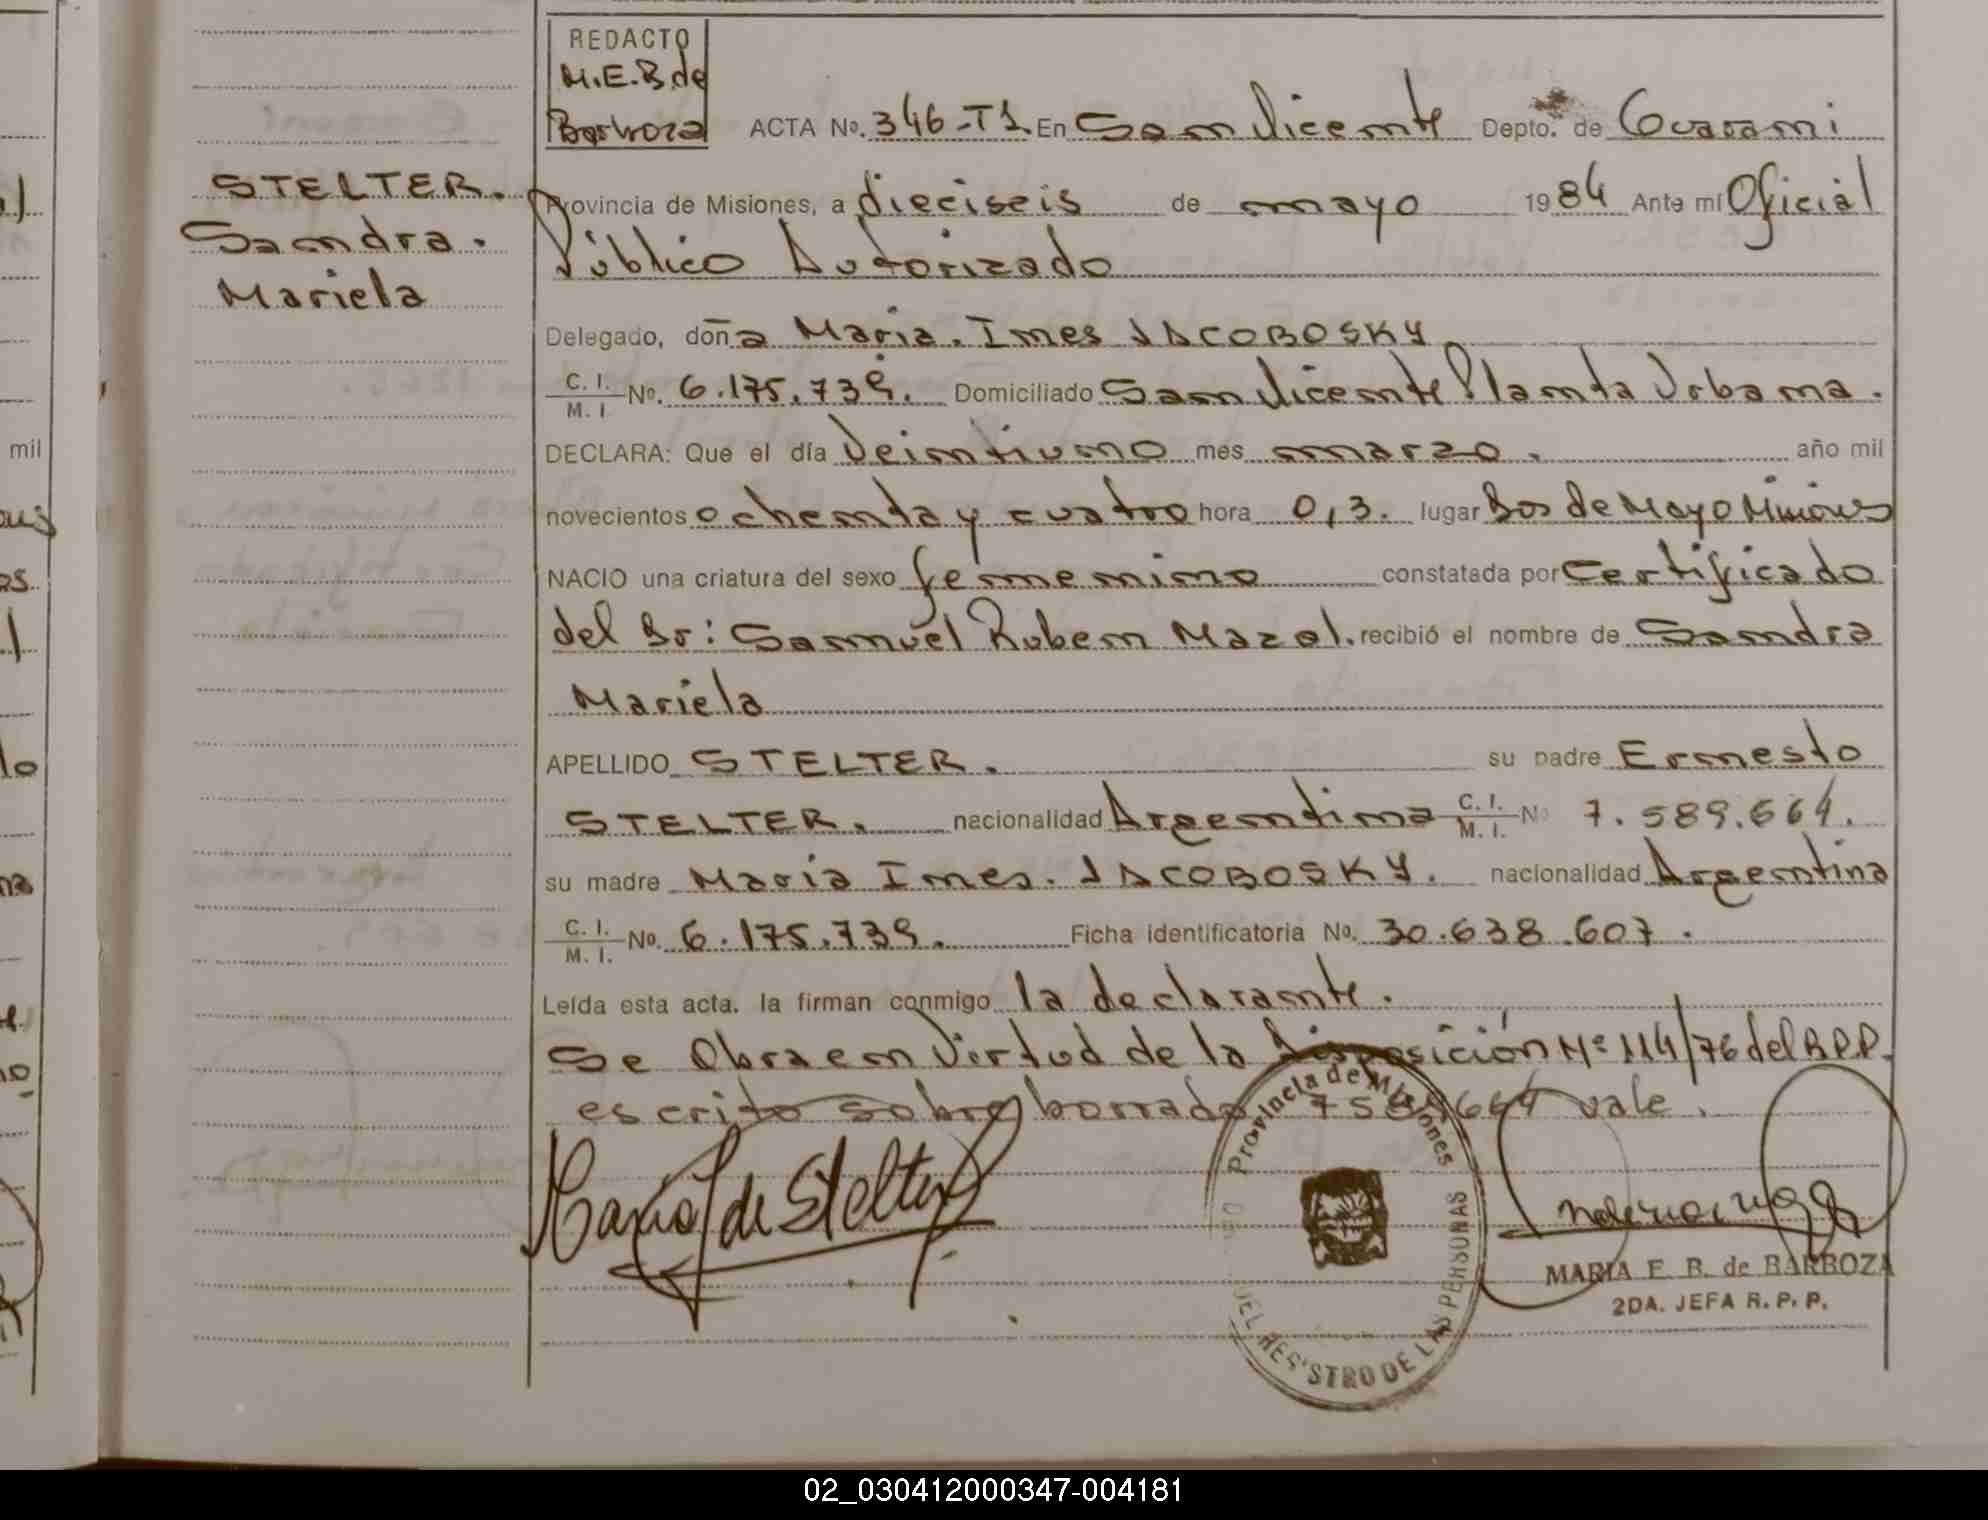 REDACTO
M.E.B. de
Barboza
ACTA No. 346-T1. En San Vicente Depto. de Guarani
STELTER.
Sandra.
Mariela
Provincia de Misiones, a dieciseis de mayo 1984 Ante mí Oficial
Público Autorizado
Delegado, doña Maria. Ines JACOBOSKY
C. I.
M. I. No. 6.175.739. Domiciliado San Vicente Planta Urbana.
DECLARA: Que el día Veintiuno mes marzo. año mil
novecientos ochenta y cuatro hora 0,3. lugar 2 de Mayo Misiones
NACIO una criatura del sexo femenino constatada por Certificado
del Dr: Samuel Ruben Mazal. recibió el nombre de Sandra
Mariela
APELLIDO STELTER. su padre Ernesto
STELTER. nacionalidad Argentina C. I.
M. I. No 7.589.664.
su madre Maria Ines. JACOBOSKY. nacionalidad Argentina
C. I.
M. I. No. 6.175.739. Ficha identificatoria No. 30.638.607.
Leída esta acta. la firman conmigo la declarante.
Se Obra en Virtud de la Disposición Nº 114/76 del R.P.P.
escrito sobre borrado 7589664 vale.
Maria J de Stelter
Provincia de Misiones
DEL REGISTRO DE LAS PERSONAS
MARIA E. B. de BARBOZA
2DA. JEFA R. P. P.
mil
02_030412000347-004181